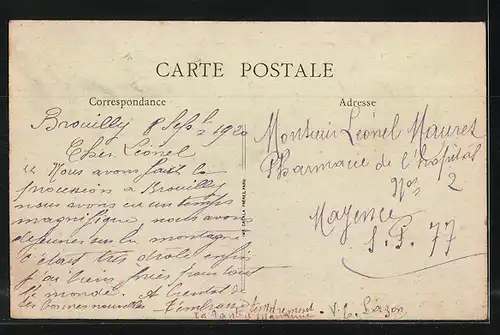 CARTE POSTALE
Correspondance
Adresse
Brouilly 8 Sept 1920
Cher Léonel
Nous avons fait la
procession a Brouilly
nous avons eu un temps
magnifique, nous avons
dejeuner sur la montagne
c'était très drole enfin
j'ai bien priés pour tout
le monde. A bientot de
tes bonnes nouvelles t'embrasse tendrement
IMP. CATALA FRÈRES, PARIS
Monsieur Léonel Mauret
Pharmacie de l'hopital
No 2
Mayence
S.P. 77